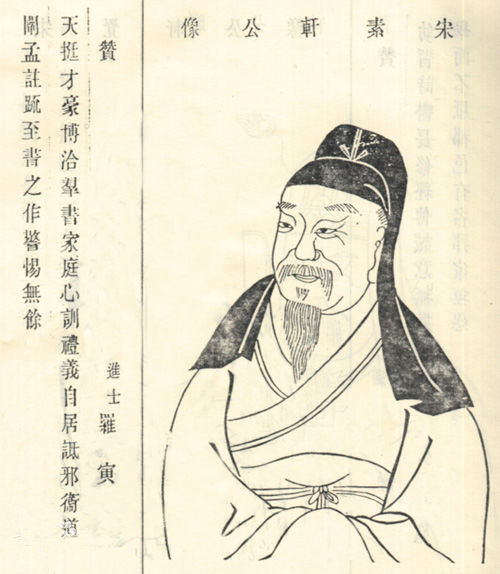 宋素軒公像
贊 進士羅寅
天挺才豪博洽羣書家庭心訓禮義自居詆邪衞道
闢孟註䟽至書之作警惕無餘